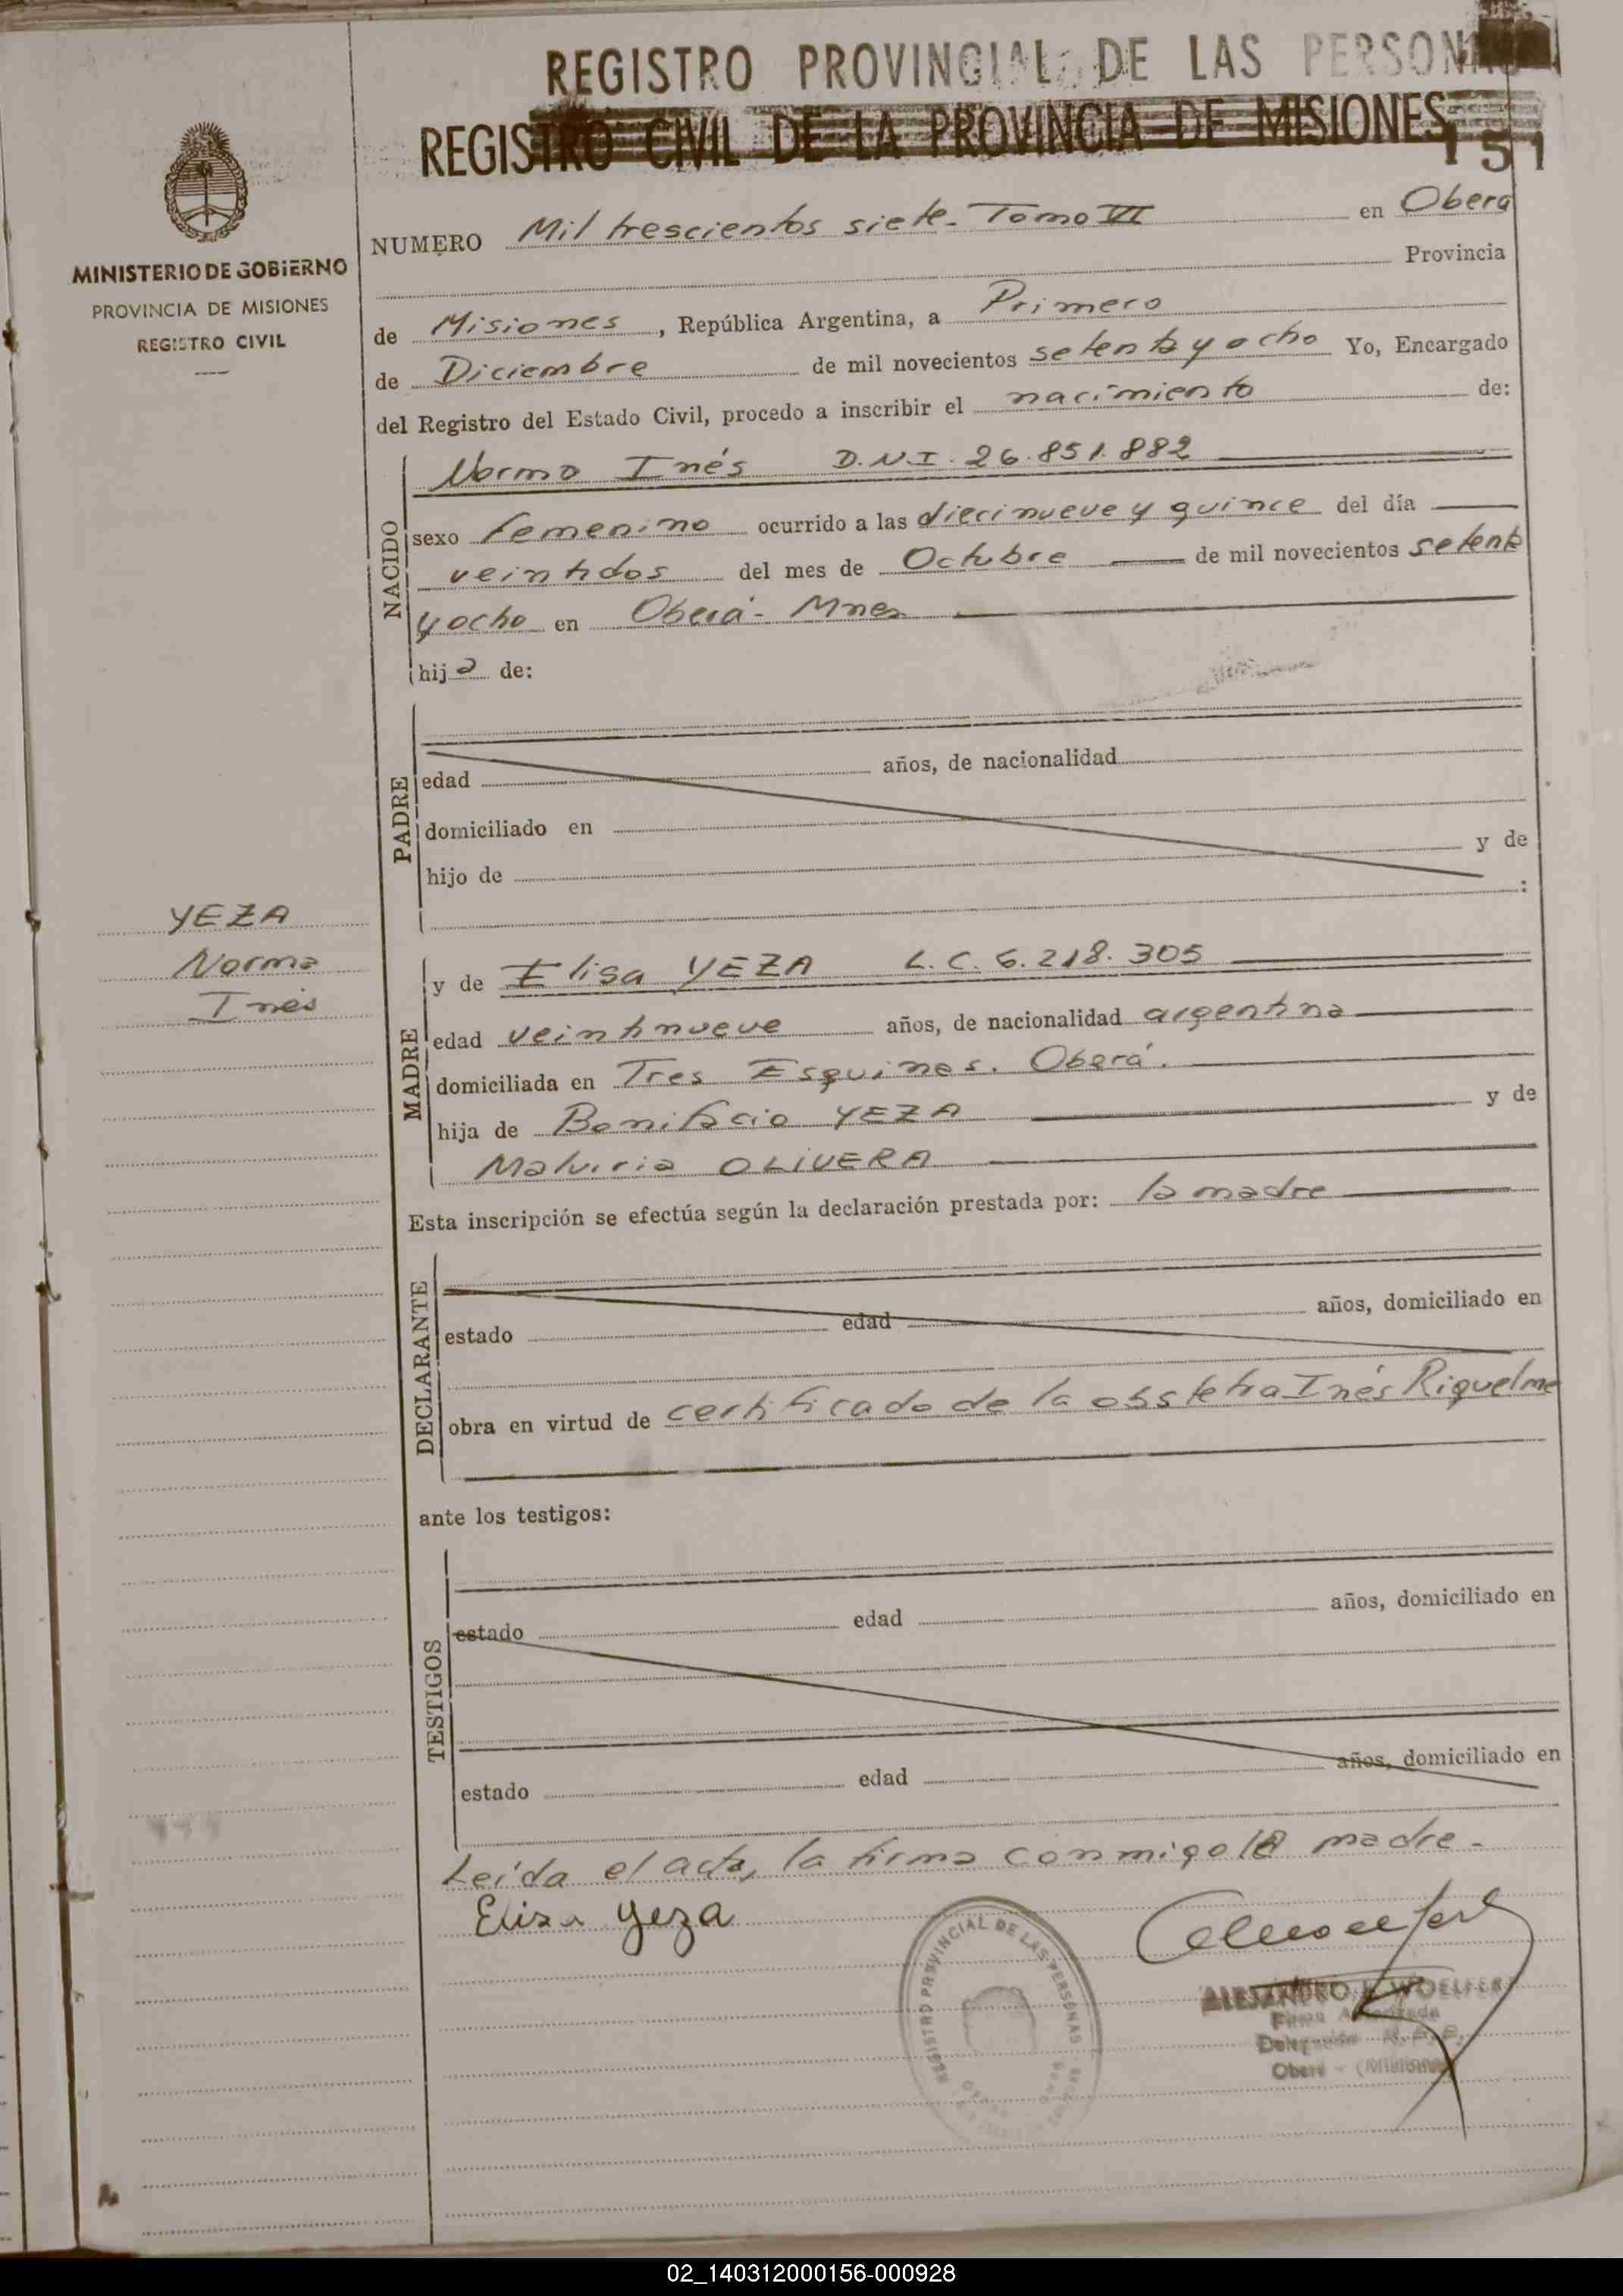 REGISTRO PROVINCIAL DE LAS PERSONAS
REGISTRO CIVIL DE LA PROVINCIA DE MISIONES
151
MINISTERIO DE GOBIERNO
PROVINCIA DE MISIONES
REGISTRO CIVIL
NUMERO Mil trescientos siete - Tomo VI en Oberá
Provincia
de Misiones, República Argentina, a Primero
de Diciembre de mil novecientos setenta y ocho Yo, Encargado
del Registro del Estado Civil, procedo a inscribir el nacimiento de:
NACIDO
Norma Inés D.N.I. 26.851.882
sexo femenino ocurrido a las diecinueve y quince del día
veintidos del mes de Octubre de mil novecientos setenta
y ocho en Oberá - Mnes
hija de:
PADRE
edad años, de nacionalidad
domiciliado en
hijo de y de
:
YEZA
Norma
Inés
MADRE
y de Elisa YEZA L.C. 6.218.305
edad veintinueve años, de nacionalidad argentina
domiciliada en Tres Esquinas. Oberá.
hija de Bonifacio YEZA y de
OLIVERA
Esta inscripción se efectúa según la declaración prestada por: la madre
DECLARANTE
estado edad años, domiciliado en
obra en virtud de certificado de la obstetra Inés Riquelme
ante los testigos:
TESTIGOS
estado edad años, domiciliado en
estado edad años, domiciliado en
Leída el acta, la firma conmigo la madre -
Elisa Yeza
REGISTRO PROVINCIAL DE LAS PERSONAS
ALEJANDRO WOELFERT
Firma Autorizada
Delegación
Oberá - (Misiones)
02_140312000156-000928